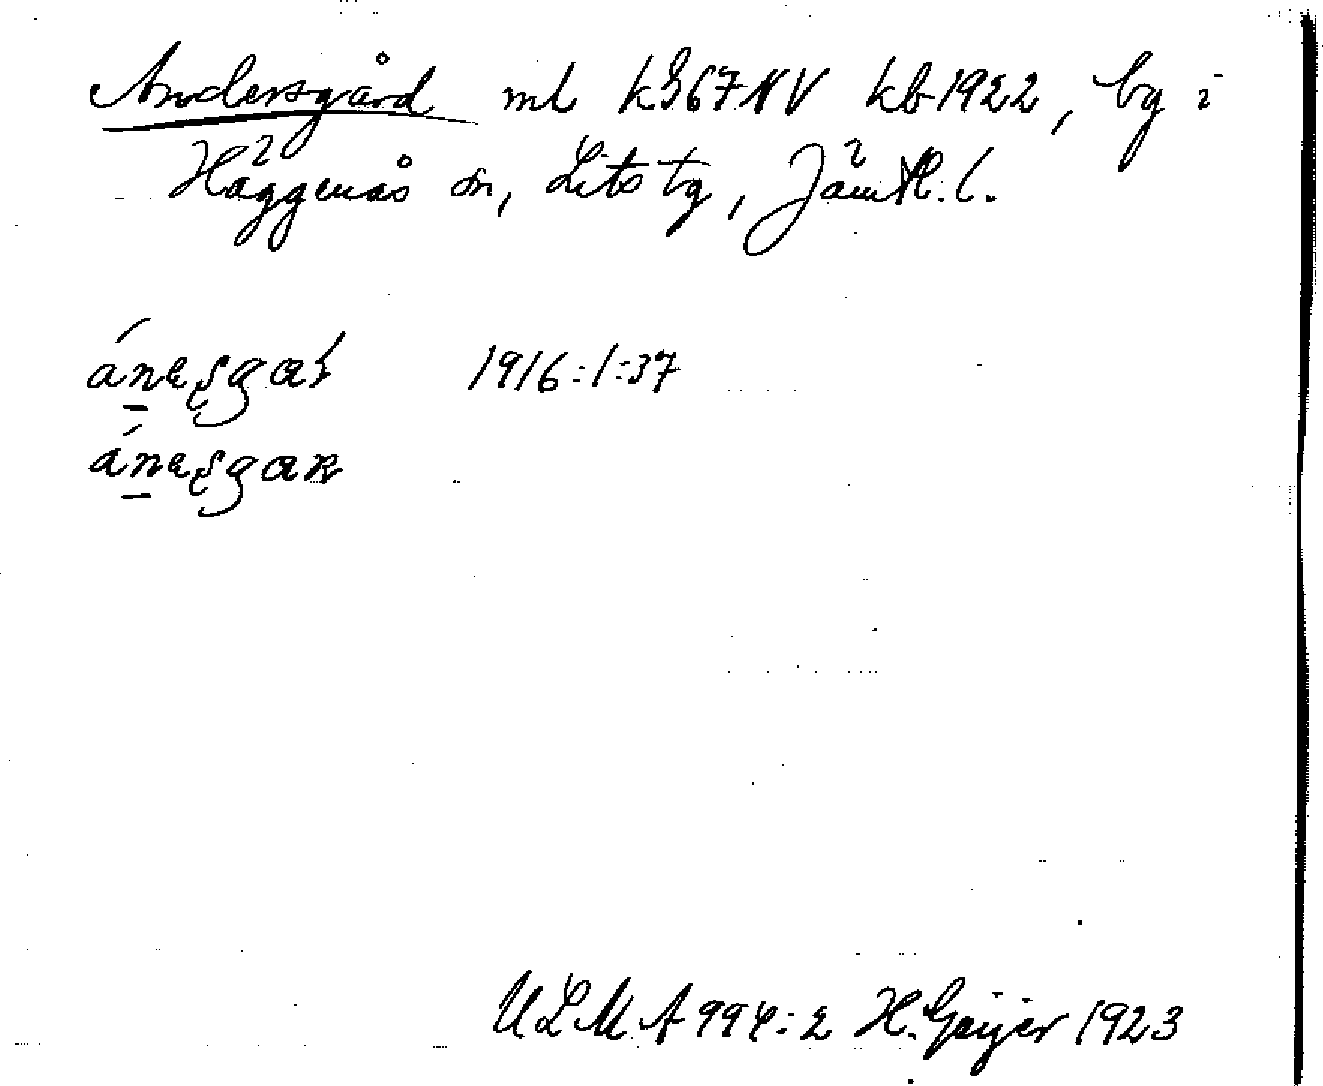 Andersgård ml k367NV kb1922, by i
Häggenås sn, Lits tg, Jämtl. l.
1916:1:37
ULMA 994:2 H. Geijer 1923